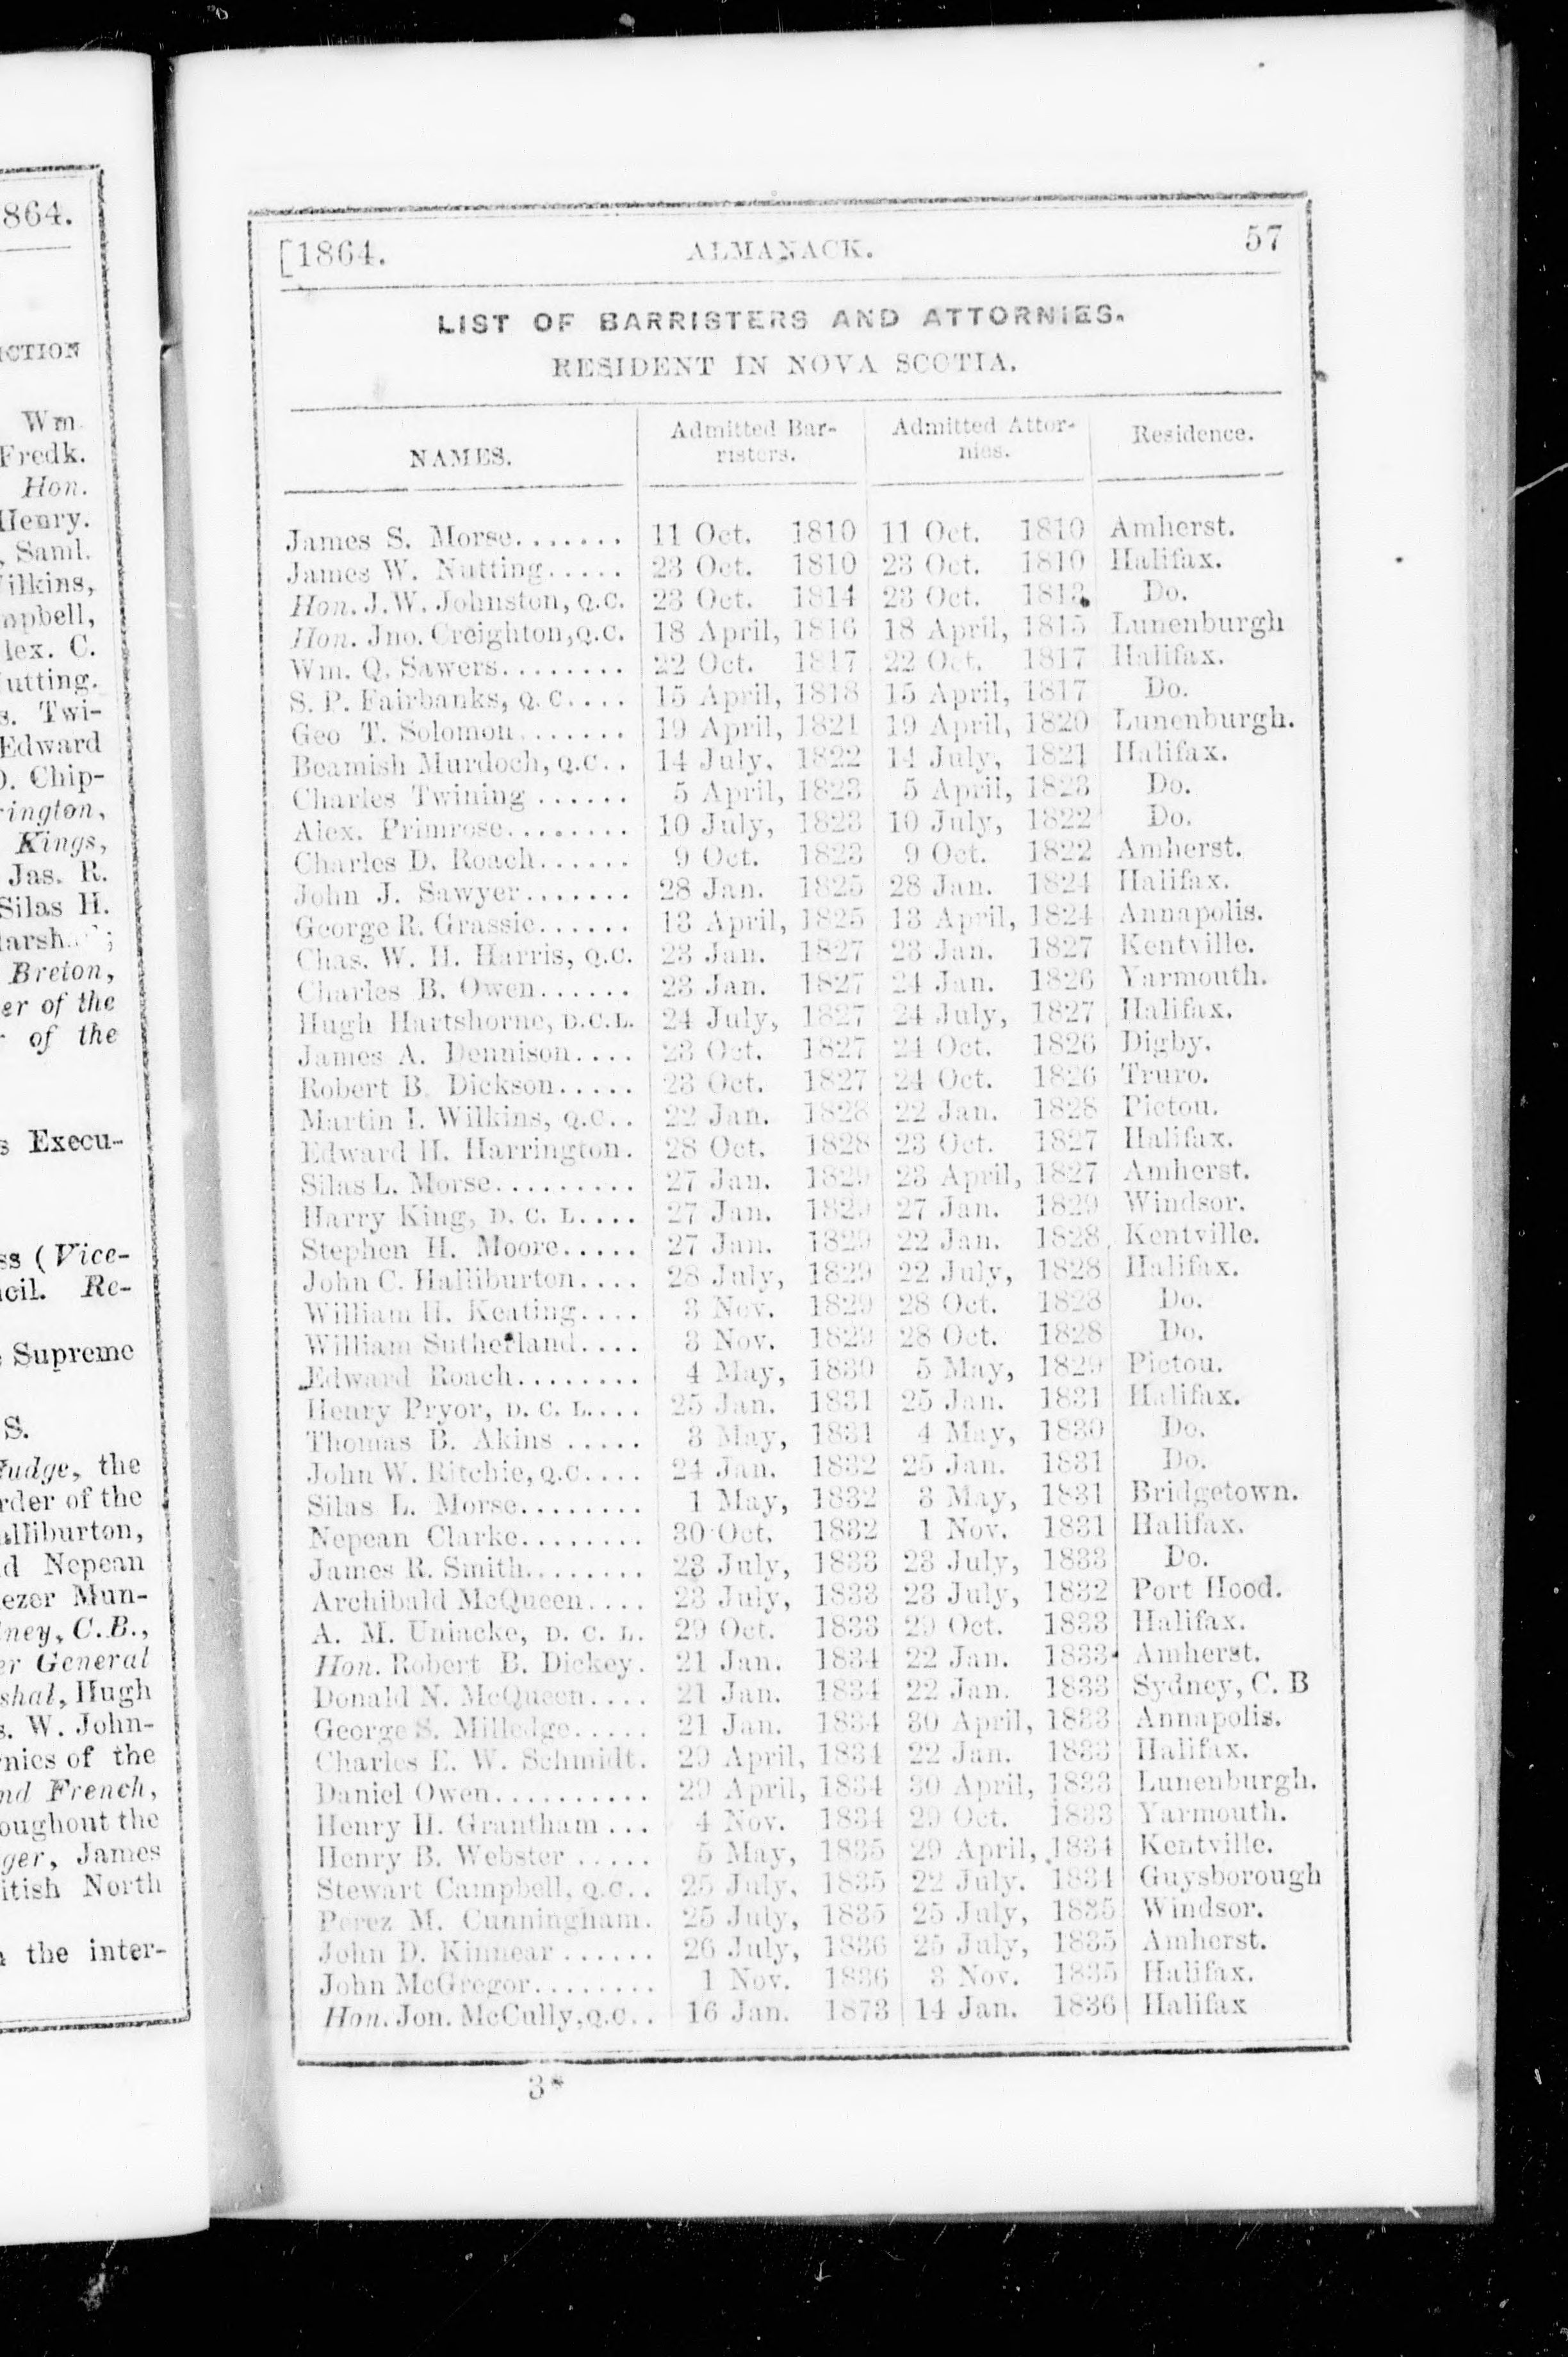 864.
ICTION
Wm.
Fredk.
Hon.
Henry.
, Saml.
ilkins,
mpbell,
lex. C.
utting.
s. Twi-
Edward
D. Chip-
rington,
Kings,
Jas. R.
Silas H.
arsh
Breton,
er of the
of the
s Execu-
ss (Vice-
cil. Re-
Supreme
S.
Judge, the
rder of the
alliburton,
d Nepean
ezer Mun-
ney, C.B.,
er General
shal, Hugh
s. W. John-
nies of the
nd French,
oughout the
ger, James
itish North
the inter-
[1864. ALMANACK. 57
LIST OF BARRISTERS AND ATTORNIES.
RESIDENT IN NOVA SCOTIA.
NAMES. Admitted Bar-risters. Admitted Attor-nies. Residence.
James S. Morse....... 11 Oct. 1810 11 Oct. 1810 Amherst.
James W. Nutting..... 23 Oct. 1810 23 Oct. 1810 Halifax.
Hon. J.W. Johnston, Q.C. 23 Oct. 1814 23 Oct. 1813 Do.
Hon. Jno. Creighton, Q.C. 18 April, 1816 18 April, 1815 Lunenburgh
Wm. Q. Sawers........ 22 Oct. 1817 22 Oct. 1817 Halifax.
S. P. Fairbanks, Q.C.... 15 April, 1818 15 April, 1817 Do.
Geo T. Solomon....... 19 April, 1821 19 April, 1820 Lunenburgh.
Beamish Murdoch, Q.C.. 14 July, 1822 14 July, 1821 Halifax.
Charles Twining ...... 5 April, 1823 5 April, 1823 Do.
Alex. Primrose........ 10 July, 1823 10 July, 1822 Do.
Charles D. Roach...... 9 Oct. 1823 9 Oct. 1822 Amherst.
John J. Sawyer....... 28 Jan. 1825 28 Jan. 1824 Halifax.
George R. Grassie...... 13 April, 1825 13 April, 1824 Annapolis.
Chas. W. H. Harris, Q.C. 23 Jan. 1827 23 Jan. 1827 Kentville.
Charles B. Owen...... 23 Jan. 1827 24 Jan. 1826 Yarmouth.
Hugh Hartshorne, D.C.L. 24 July, 1827 24 July, 1827 Halifax.
James A. Dennison.... 23 Oct. 1827 24 Oct. 1826 Digby.
Robert B. Dickson..... 23 Oct. 1827 24 Oct. 1826 Truro.
Martin I. Wilkins, Q.C.. 22 Jan. 1828 22 Jan. 1828 Pictou.
Edward H. Harrington. 28 Oct. 1828 23 Oct. 1827 Halifax.
Silas L. Morse......... 27 Jan. 1829 23 April, 1827 Amherst.
Harry King, D. C. L.... 27 Jan. 1829 27 Jan. 1829 Windsor.
Stephen H. Moore..... 27 Jan. 1829 22 Jan. 1828 Kentville.
John C. Halliburton.... 28 July, 1829 22 July, 1828 Halifax.
William H. Keating.... 3 Nov. 1829 28 Oct. 1828 Do.
William Sutherland.... 3 Nov. 1829 28 Oct. 1828 Do.
Edward Roach........ 4 May, 1830 5 May, 1829 Pictou.
Henry Pryor, D. C. L.... 25 Jan. 1831 25 Jan. 1831 Halifax.
Thomas B. Akins ..... 3 May, 1831 4 May, 1830 Do.
John W. Ritchie, Q.C.... 24 Jan. 1832 25 Jan. 1831 Do.
Silas L. Morse........ 1 May, 1832 3 May, 1831 Bridgetown.
Nepean Clarke........ 30 Oct. 1832 1 Nov. 1831 Halifax.
James R. Smith........ 23 July, 1833 23 July, 1833 Do.
Archibald McQueen.... 23 July, 1833 23 July, 1832 Port Hood.
A. M. Uniacke, D. C. L. 29 Oct. 1833 29 Oct. 1833 Halifax.
Hon. Robert B. Dickey. 21 Jan. 1834 22 Jan. 1833 Amherst.
Donald N. McQueen.... 21 Jan. 1834 22 Jan. 1833 Sydney, C. B
George S. Milledge..... 21 Jan. 1834 30 April, 1833 Annapolis.
Charles E. W. Schmidt. 29 April, 1834 22 Jan. 1833 Halifax.
Daniel Owen.......... 29 April, 1834 30 April, 1833 Lunenburgh.
Henry H. Grantham ... 4 Nov. 1834 29 Oct. 1833 Yarmouth.
Henry B. Webster ..... 5 May, 1835 29 April, 1834 Kentville.
Stewart Campbell, Q.C.. 25 July, 1835 22 July. 1834 Guysborough
Perez M. Cunningham. 25 July, 1835 25 July, 1835 Windsor.
John D. Kinnear ...... 26 July, 1836 25 July, 1835 Amherst.
John McGregor........ 1 Nov. 1836 3 Nov. 1835 Halifax.
Hon. Jon. McCully, Q.C.. 16 Jan. 1873 14 Jan. 1836 Halifax
3*